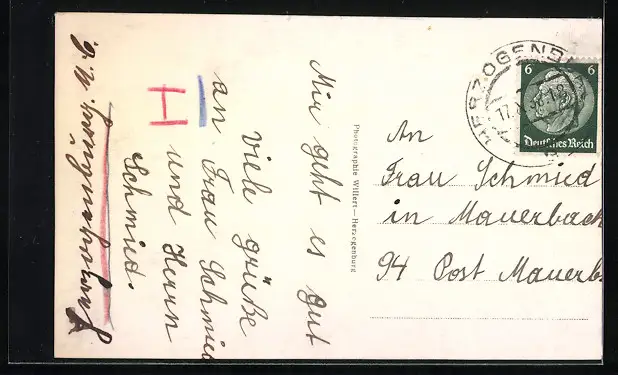 Mir geht es gut
viele grüße
an Frau Schmied
und Herrn
Schmied.
H
Photographie Willert — Herzogenburg
HERZOGENB
17.
6 6
Deutsches Reich
An
Frau Schmied
in Mauerbach
94 Post Mauerb